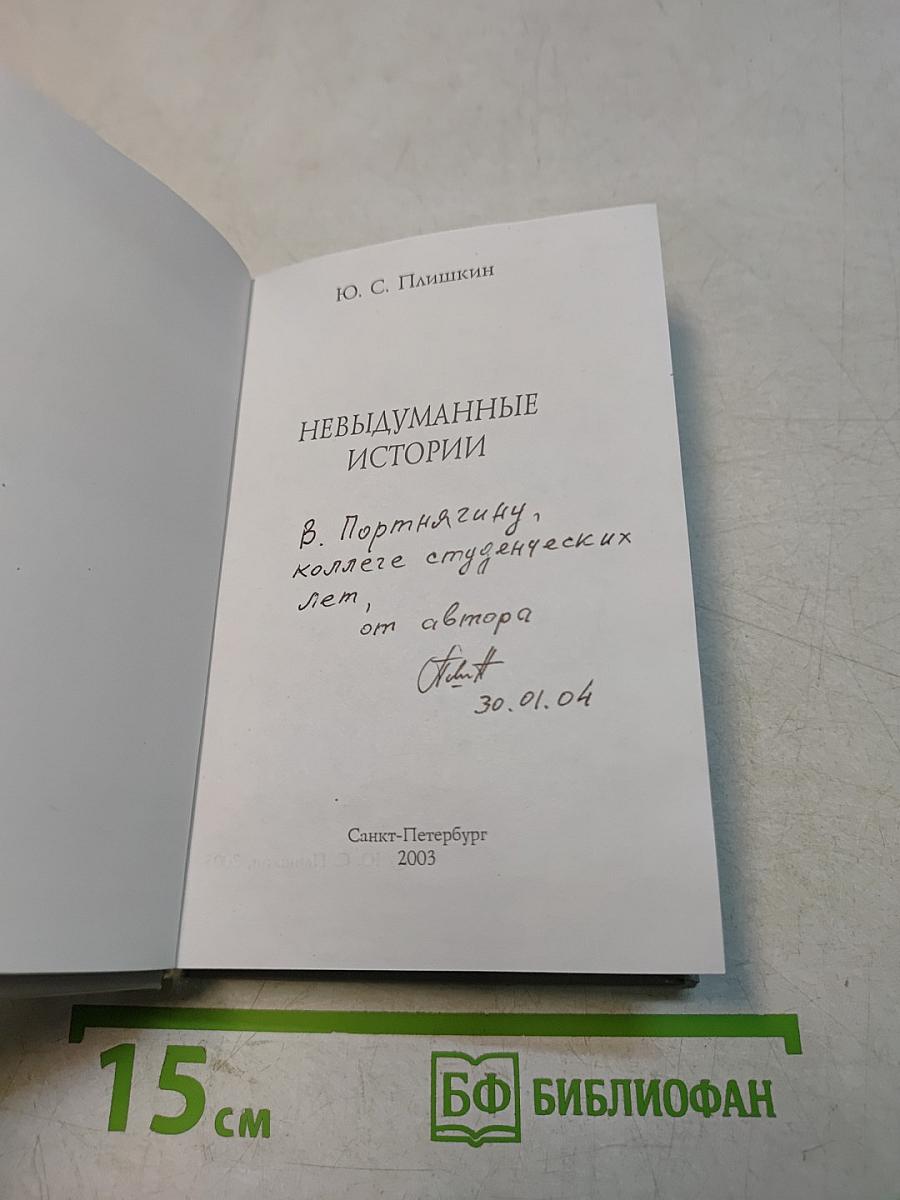 Ю. С. Плишкин
НЕВЫДУМАННЫЕ
ИСТОРИИ
В. Портнягину,
коллеге студенческих
лет,
от автора
30.01.04
Санкт-Петербург
2003
15 см
БФ БИБЛИОФАН